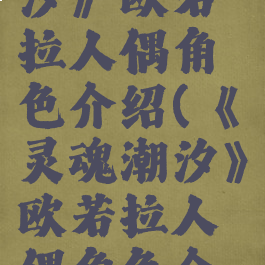 汐》欧若
拉人偶角
色介绍(《
灵魂潮汐》
欧若拉人
偶角色介